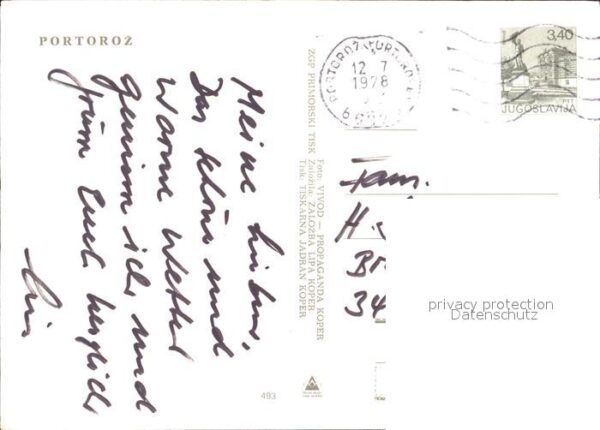 PORTOROŽ
Meine Lieben,
Das schöne und
warme Wetter
genieße ich und
grüße Euch herzlichst
ZGP PRIMORSKI TISK
Foto: VIVOD — PROPAGANDA KOPER
Založila: ZALOŽBA LIPA KOPER
Tisk: TISKARNA JADRAN KOPER
493
PORTOROŽ
12 7
1978
3,40
JUGOSLAVIJA
Fam.
H
34
privacy protection
Datenschutz